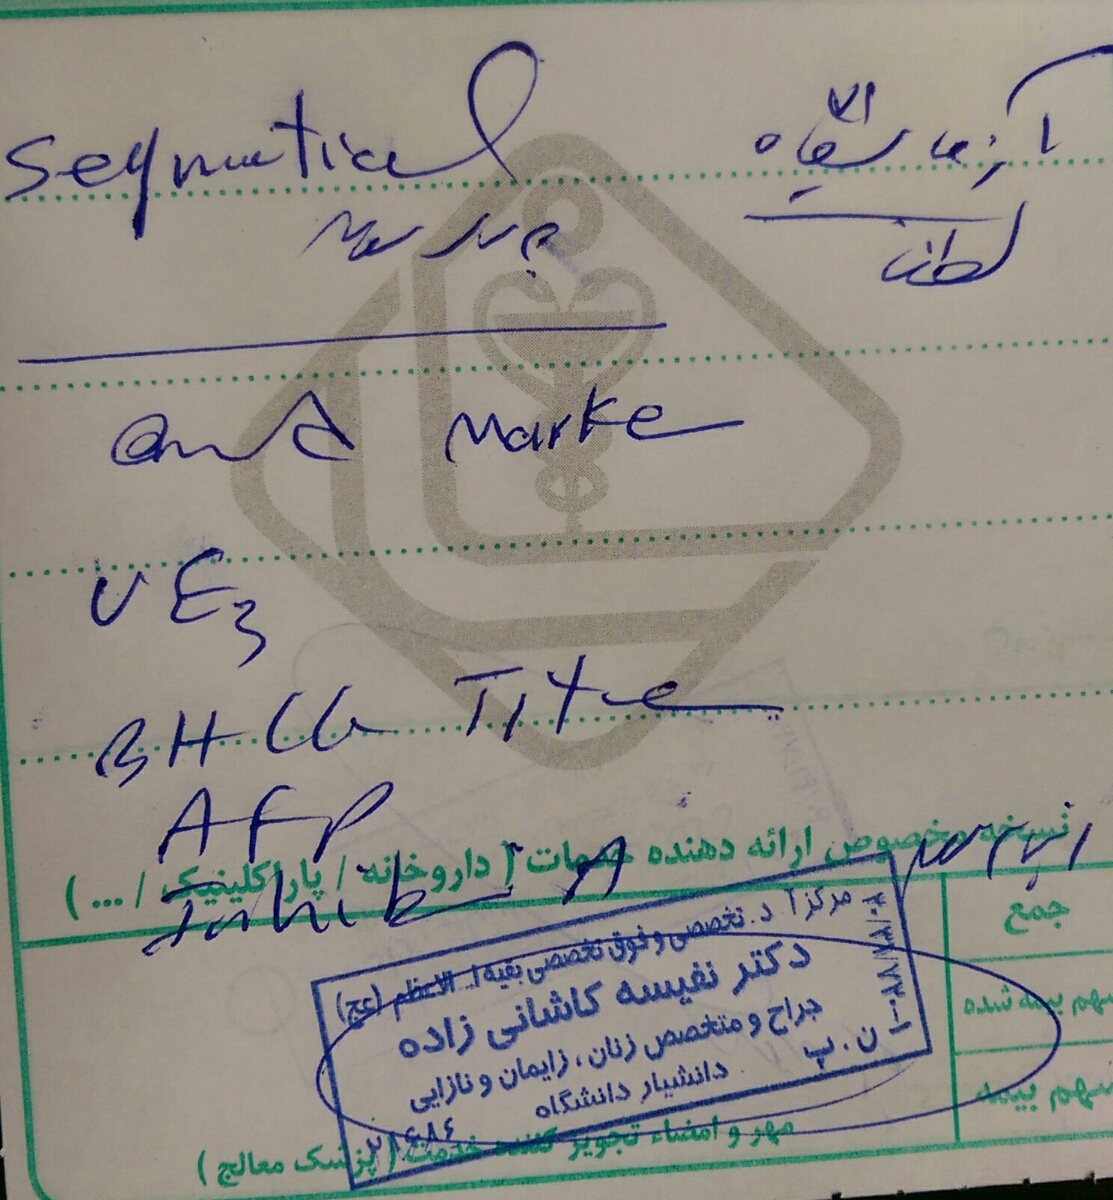 آزمایشگاه
Seqmutial
and Marke
UE3
BHCG Titre
AFP
Inhibi A
نسخه مخصوص ارائه دهنده خدمات ( داروخانه / پاراکلینیک / ... )
جمع
سهم بیمه شده
سهم بیمه
د. تخصصی و فوق تخصصی بقیه ا... الاعظم (عج)
دکتر نفیسه کاشانی زاده
جراح و متخصص زنان ، زایمان و نازایی
دانشیار دانشگاه
ن . پ
مهر و امضاء تجویز کننده خدمت ( پزشک معالج )